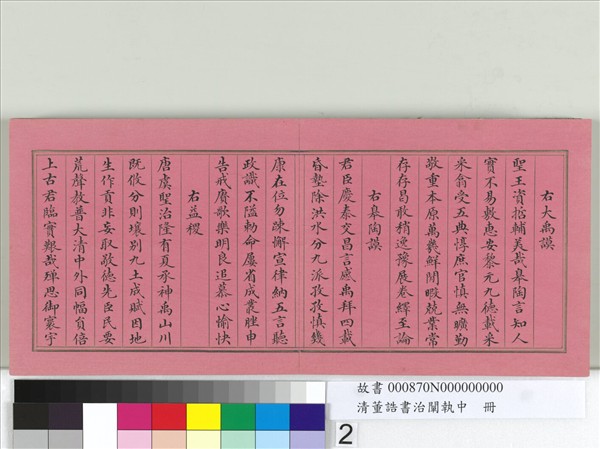 右大禹謨
聖王資揆輔美哉皋陶言知人
實不易敷惠安黎元九德載采
采翕受五典惇庶官慎無曠勤
敬重本原萬幾鮮閒暇兢業常
存存昌敢稍逸豫展卷繹至論
右皋陶謨
君臣慶泰交昌言感禹拜四載
昏墊除洪水分九派孜孜慎幾
康在位勿疎懈宣律納五言聽
政識不隘勑命屢省成叢脞申
告戒賡歌樂明良追慕心愉快
右益稷
唐虞堅治隆有夏承神禹山川
既攸分則壤別九土成賦因地
生作貢非妄取敬德先臣民要
荒聲教普大清中外同幅員倍
上古君臨實艱哉殫思御寰宇
故書 000870N000000000
清董誥書治闡執中 冊
2